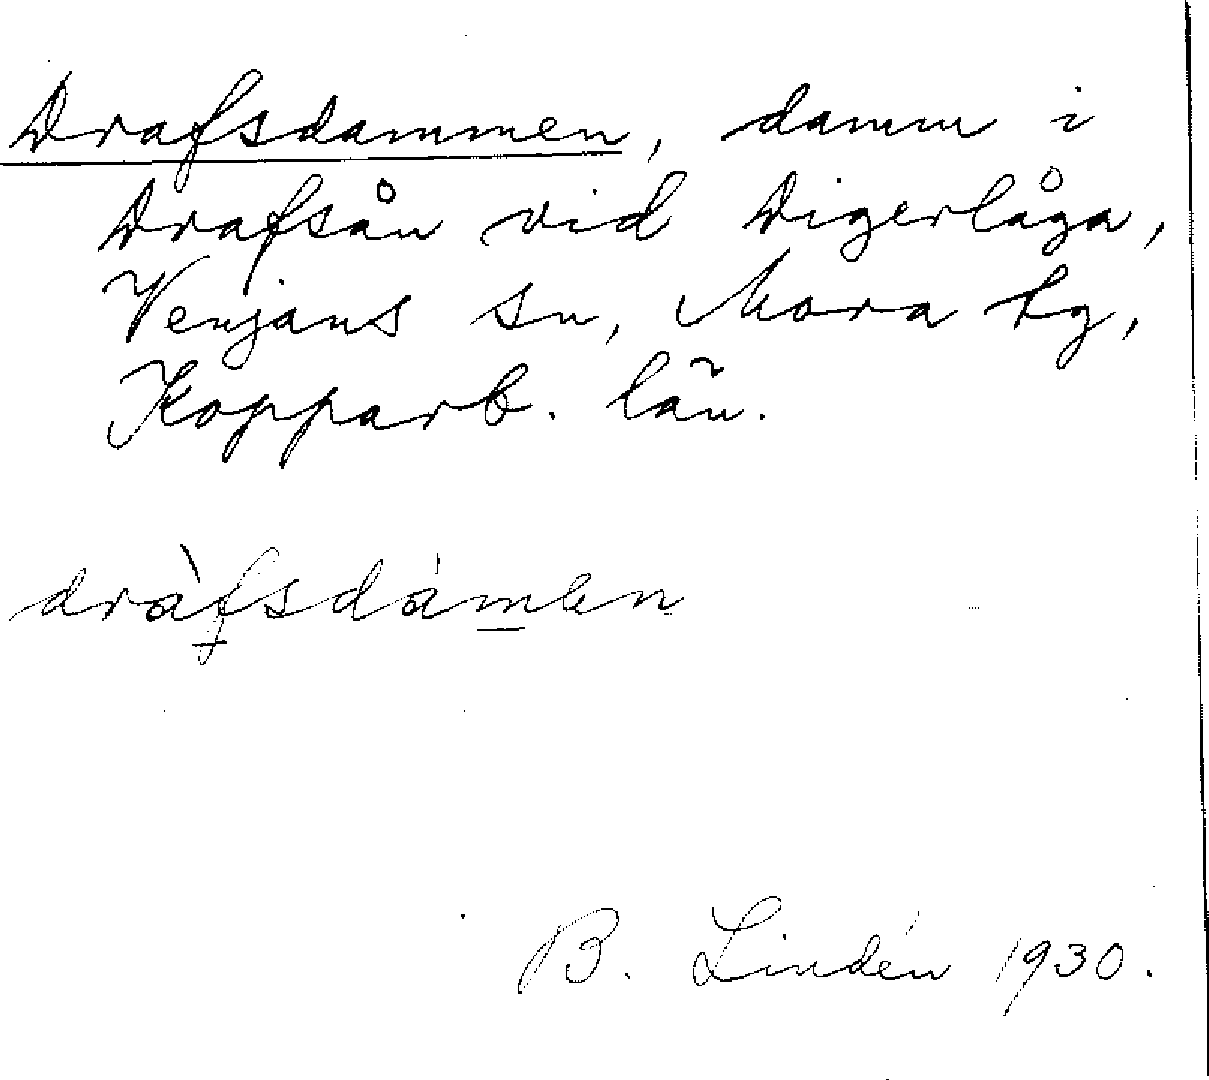 Drafsdammen, damm i
Drafsån vid Digerlåga,
Venjans sn, Mora tg,
Kopparb. län.
dràfsdámen
B. Lindén 1930.